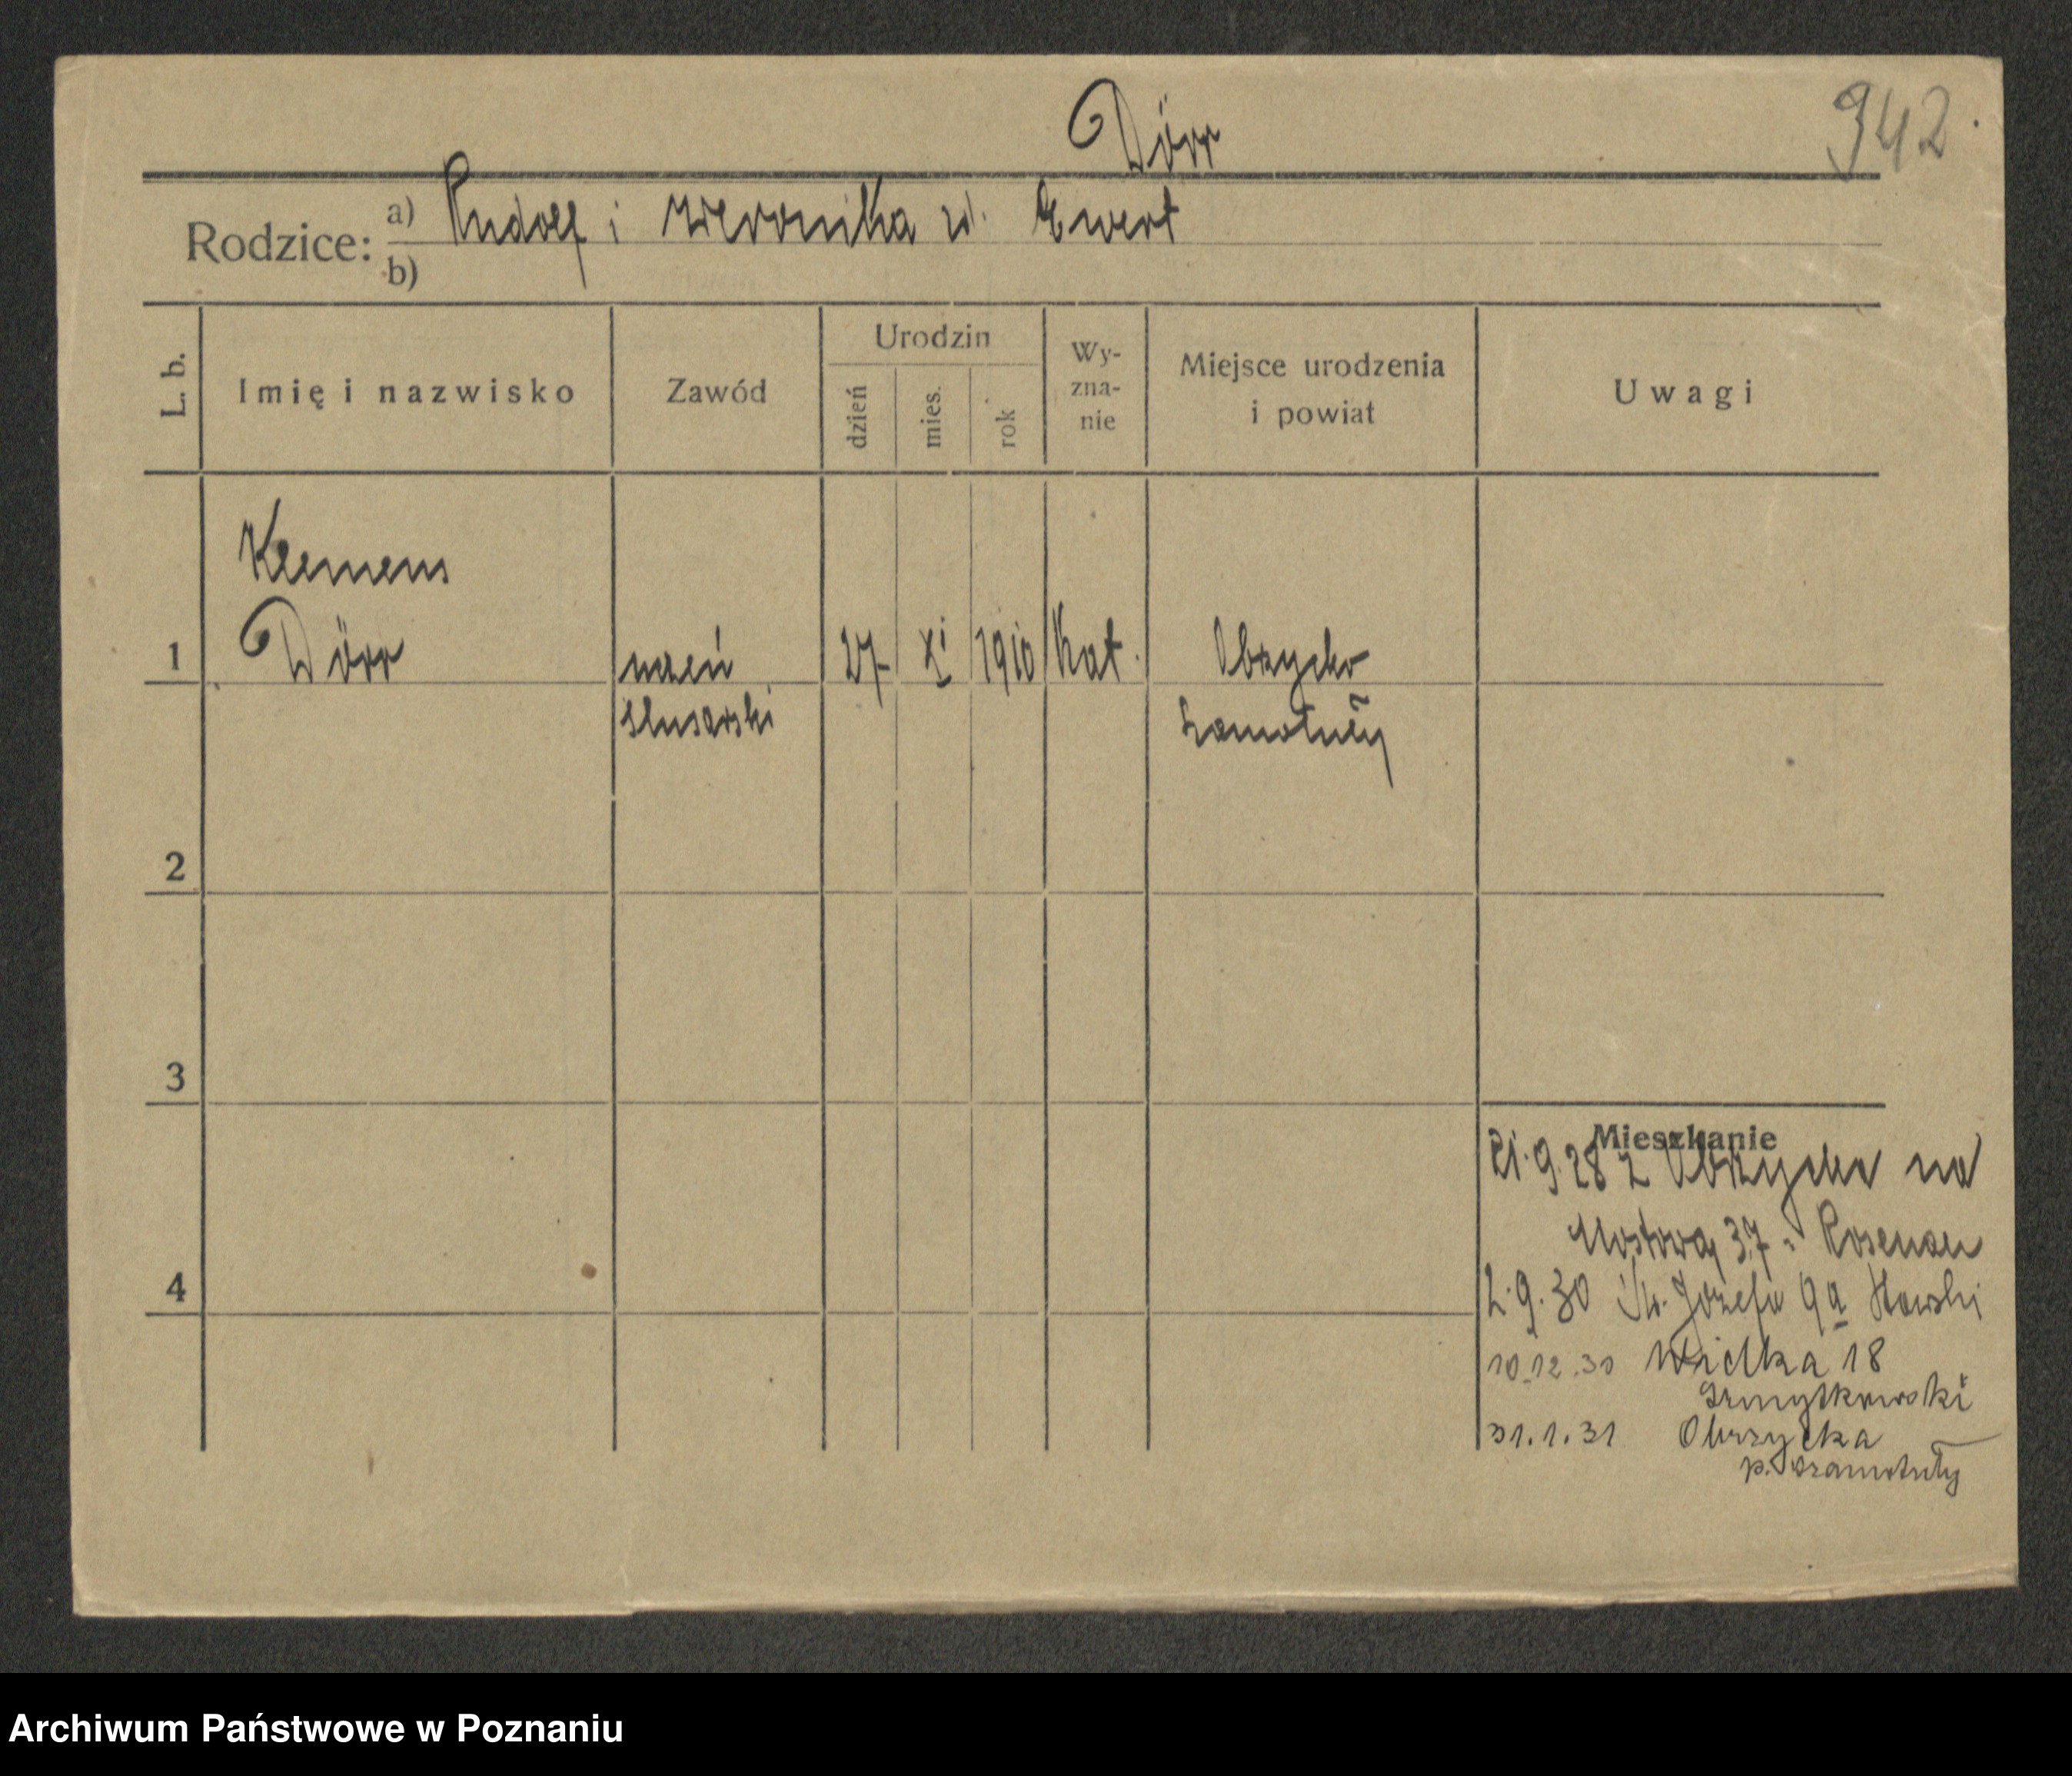 Dörr
942.
Rodzice: a) Rudolf i Weronika z d. Ewert
b)
L. b.
Imię i nazwisko
Zawód
Urodzin
dzień
mies.
rok
Wy-
zna-
nie
Miejsce urodzenia
i powiat
Uwagi
Klemens
1 Dörr uczeń 27 XI 1910 Kat. Obrzycko
ślusarski Szamotuły
2
3
Mieszkanie
21.9.28 z Obrzycka na
Mostową 37 Rosenau
4
2.9.30 Św. Józefa 9a
10.12.30 Wielka 18
31.1.31 Obrzycka
p. Szamotuły
Archiwum Państwowe w Poznaniu